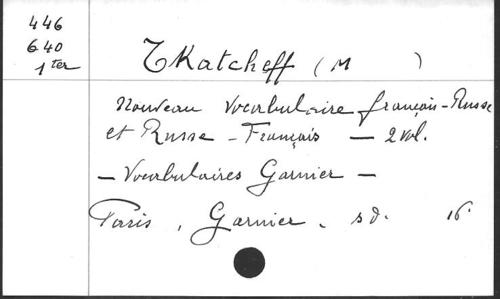 446
640
1ter
Tkatcheff (M )
Nouveau Vocabulaire français-Russe
et Russe - Français — 2 vol.
— Vocabulaires Garnier —
Paris, Garnier. sd. 16